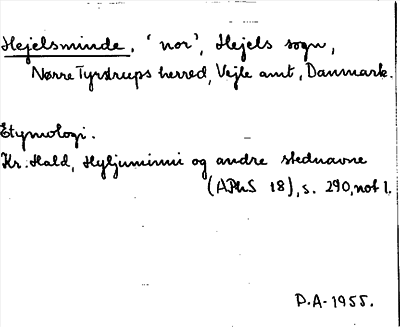 Hejelsminde, 'nor', Hejels sogn,
Nørre Tyrstrups herred, Vejle amt, Danmark.
Etymologi.
Kr. Hald, Hyljuminni og andre stednavne
(APhS 18), s. 290, not 1.
P.A-1955.